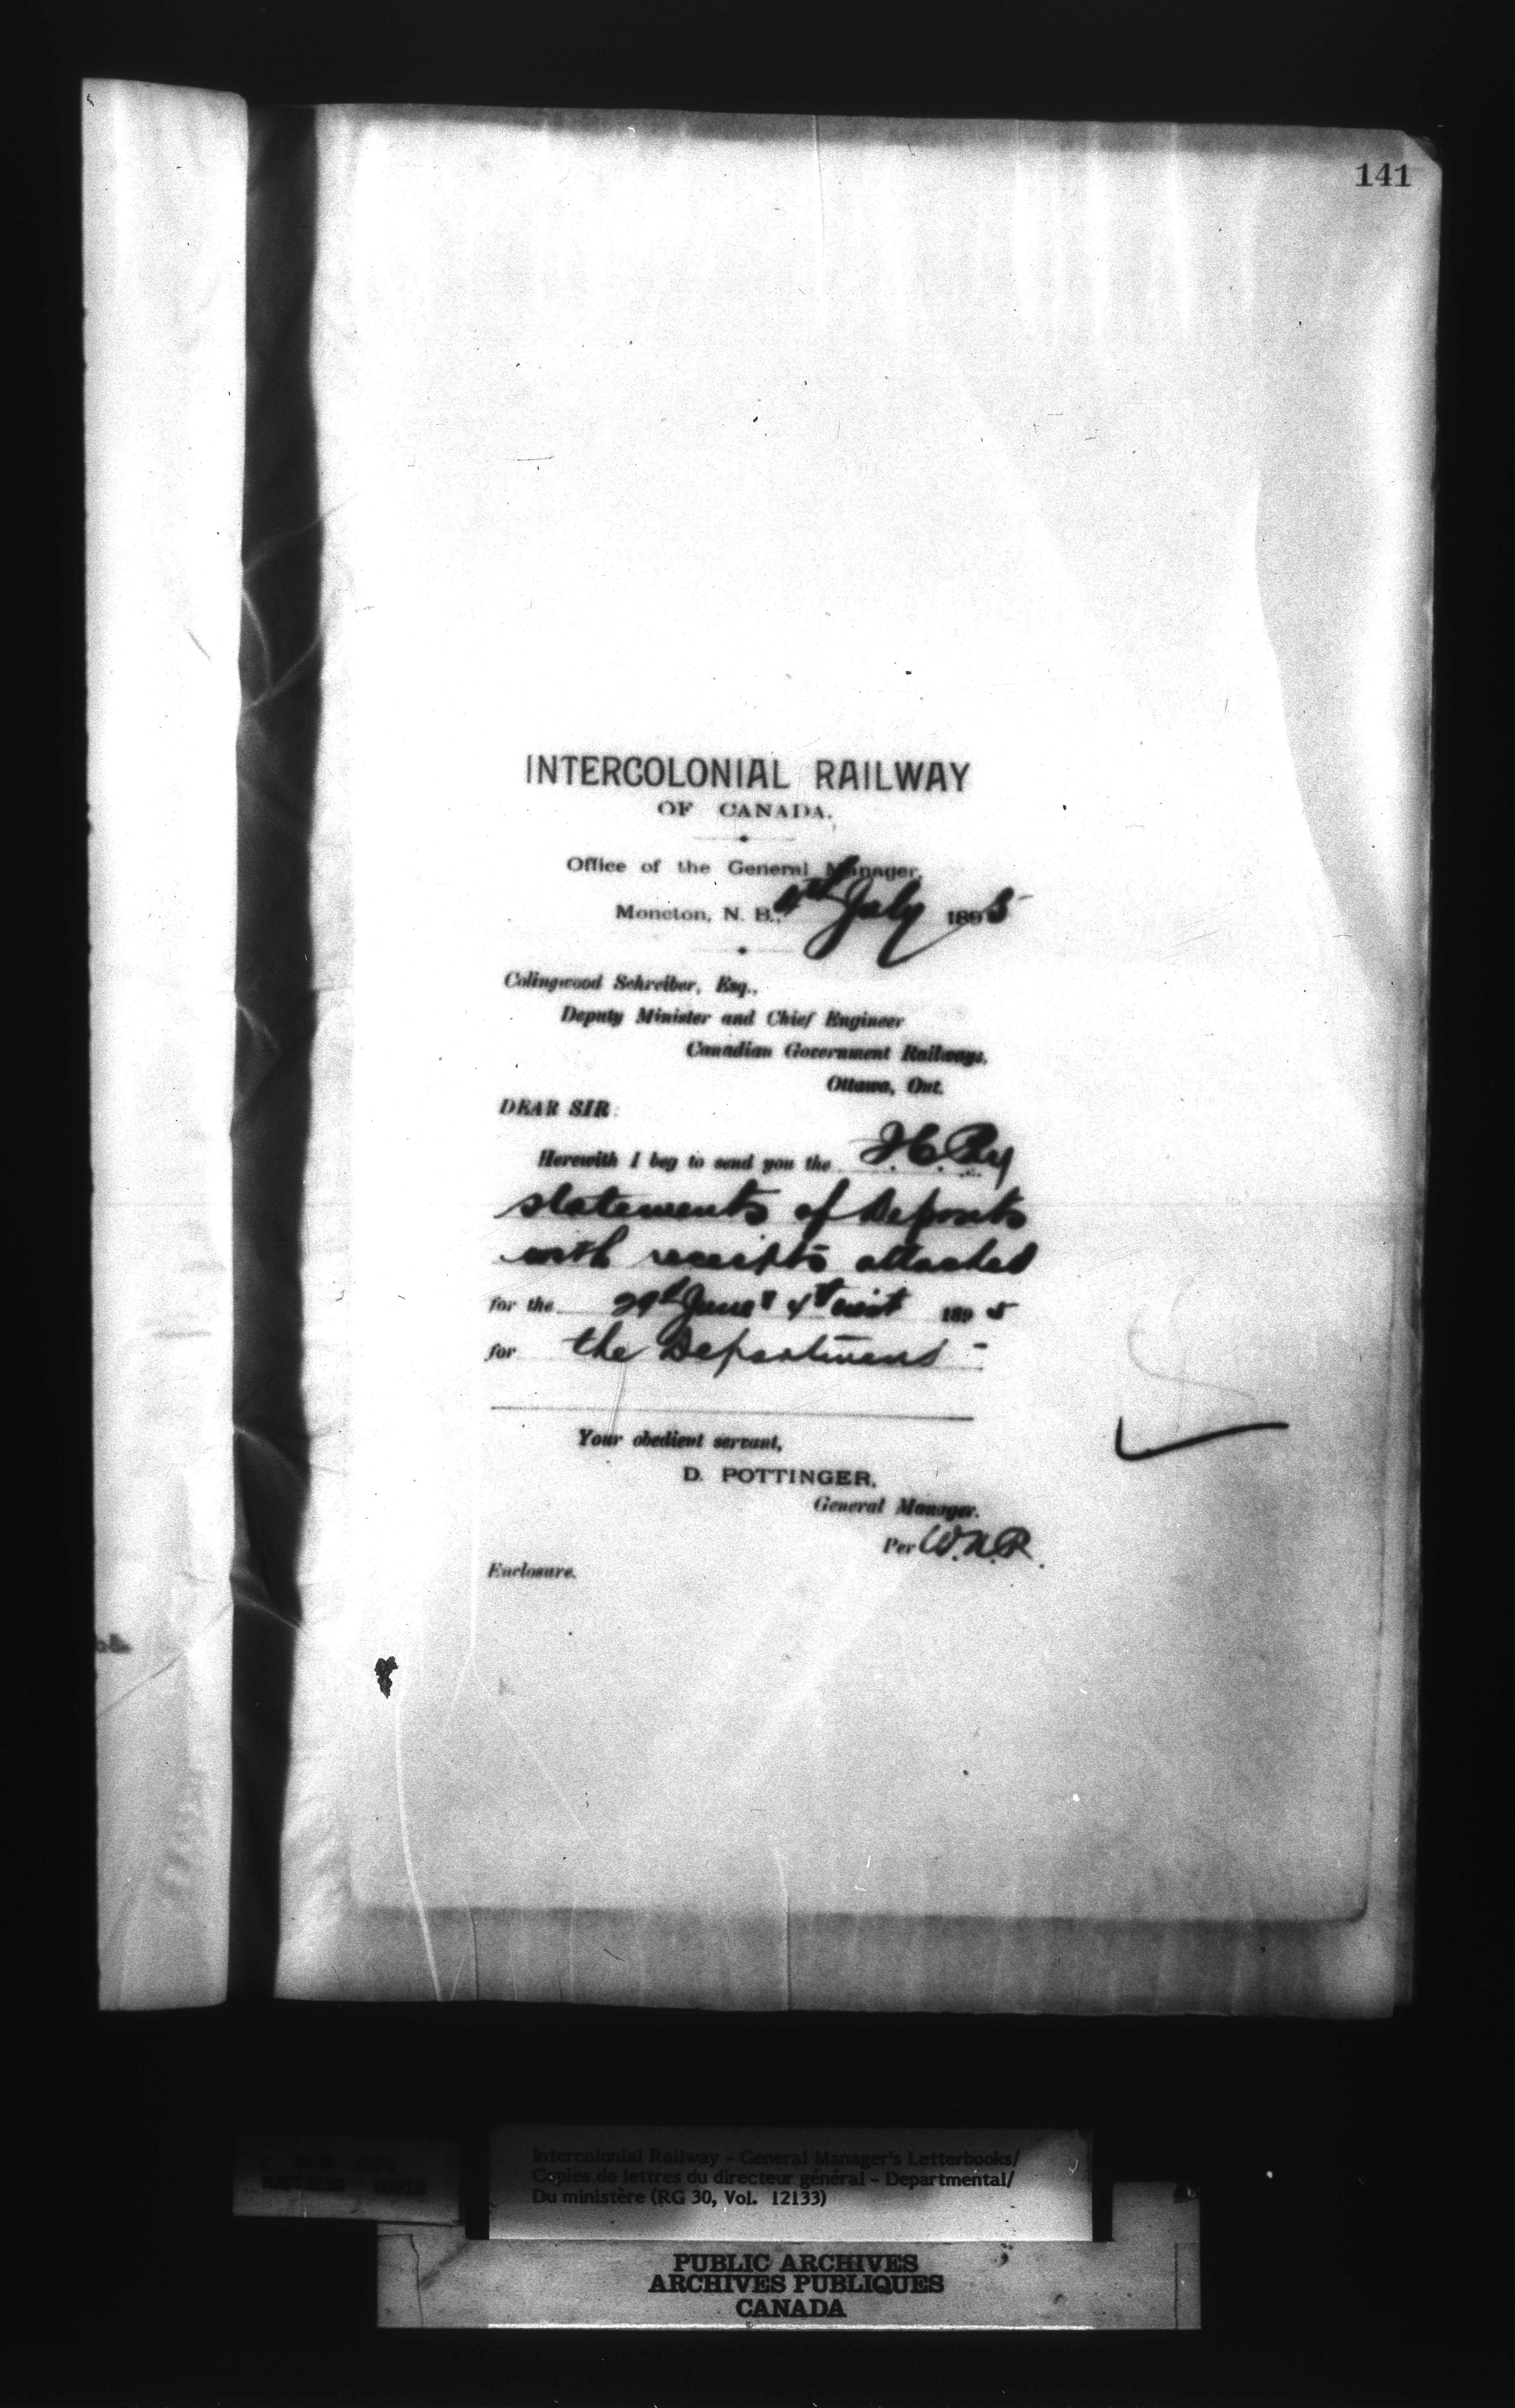 141
INTERCOLONIAL RAILWAY
OF CANADA.
Office of the General Manager,
Moncton, N. B., 4th July 1895
Colingwood Schreiber, Esq.,
Deputy Minister and Chief Engineer
Canadian Government Railways,
Ottawa, Ont.
DEAR SIR:
Herewith I beg to send you the I.C. Ry
statements of Deposits
with receipts attached
for the 29th June & 4th inst 1895
for the Department -
Your obedient servant,
D. POTTINGER,
General Manager.
Per W.N.R.
Enclosure.
POOR COPY
MAUVAISE COPIE
Intercolonial Railway - General Manager's Letterbooks/
Copies de lettres du directeur général - Departmental/
Du ministère (RG 30, Vol. 12133)
PUBLIC ARCHIVES
ARCHIVES PUBLIQUES
CANADA